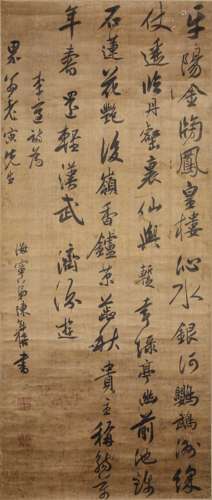 平陽金牓鳳皇樓沁水銀河鸚鵡洲綵
仗遙臨丹壑裏仙輿暫幸綠亭幽前池錦
石蓮花艷後嶺香鑪蕊秋貴主稱觴萬
年壽還輕漢武濟汾遊
李适詩為
翁老寅先生
海寧弟陳奕禧書